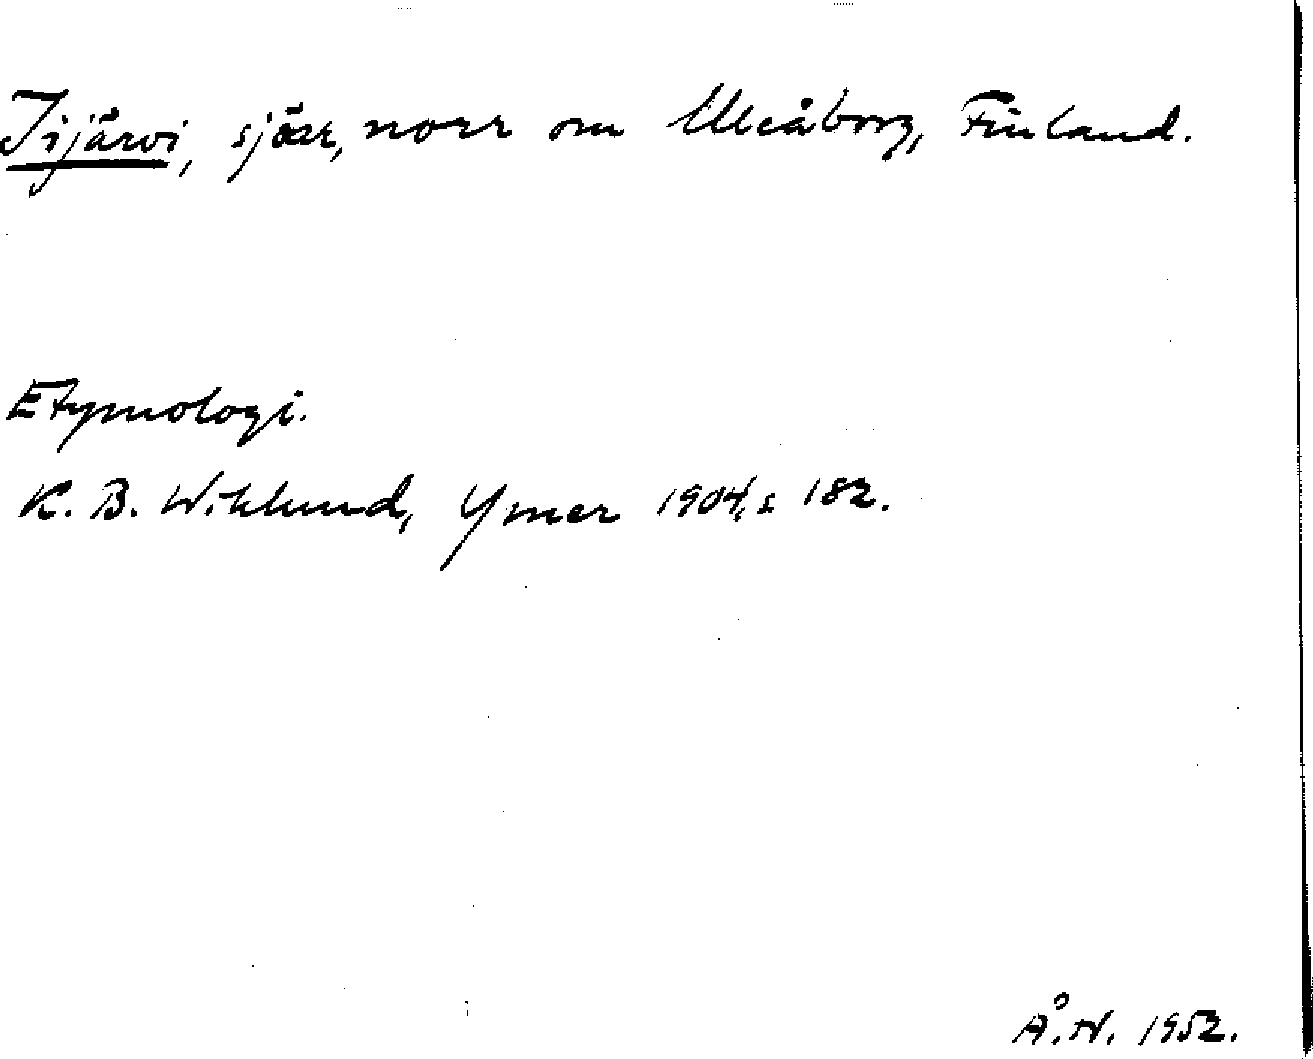 Iijärvi, sjöar, norr om Uleåborg, Finland.
Etymologi.
K. B. Wiklund, Ymer 1904, s 182.
Å. N. 1952.